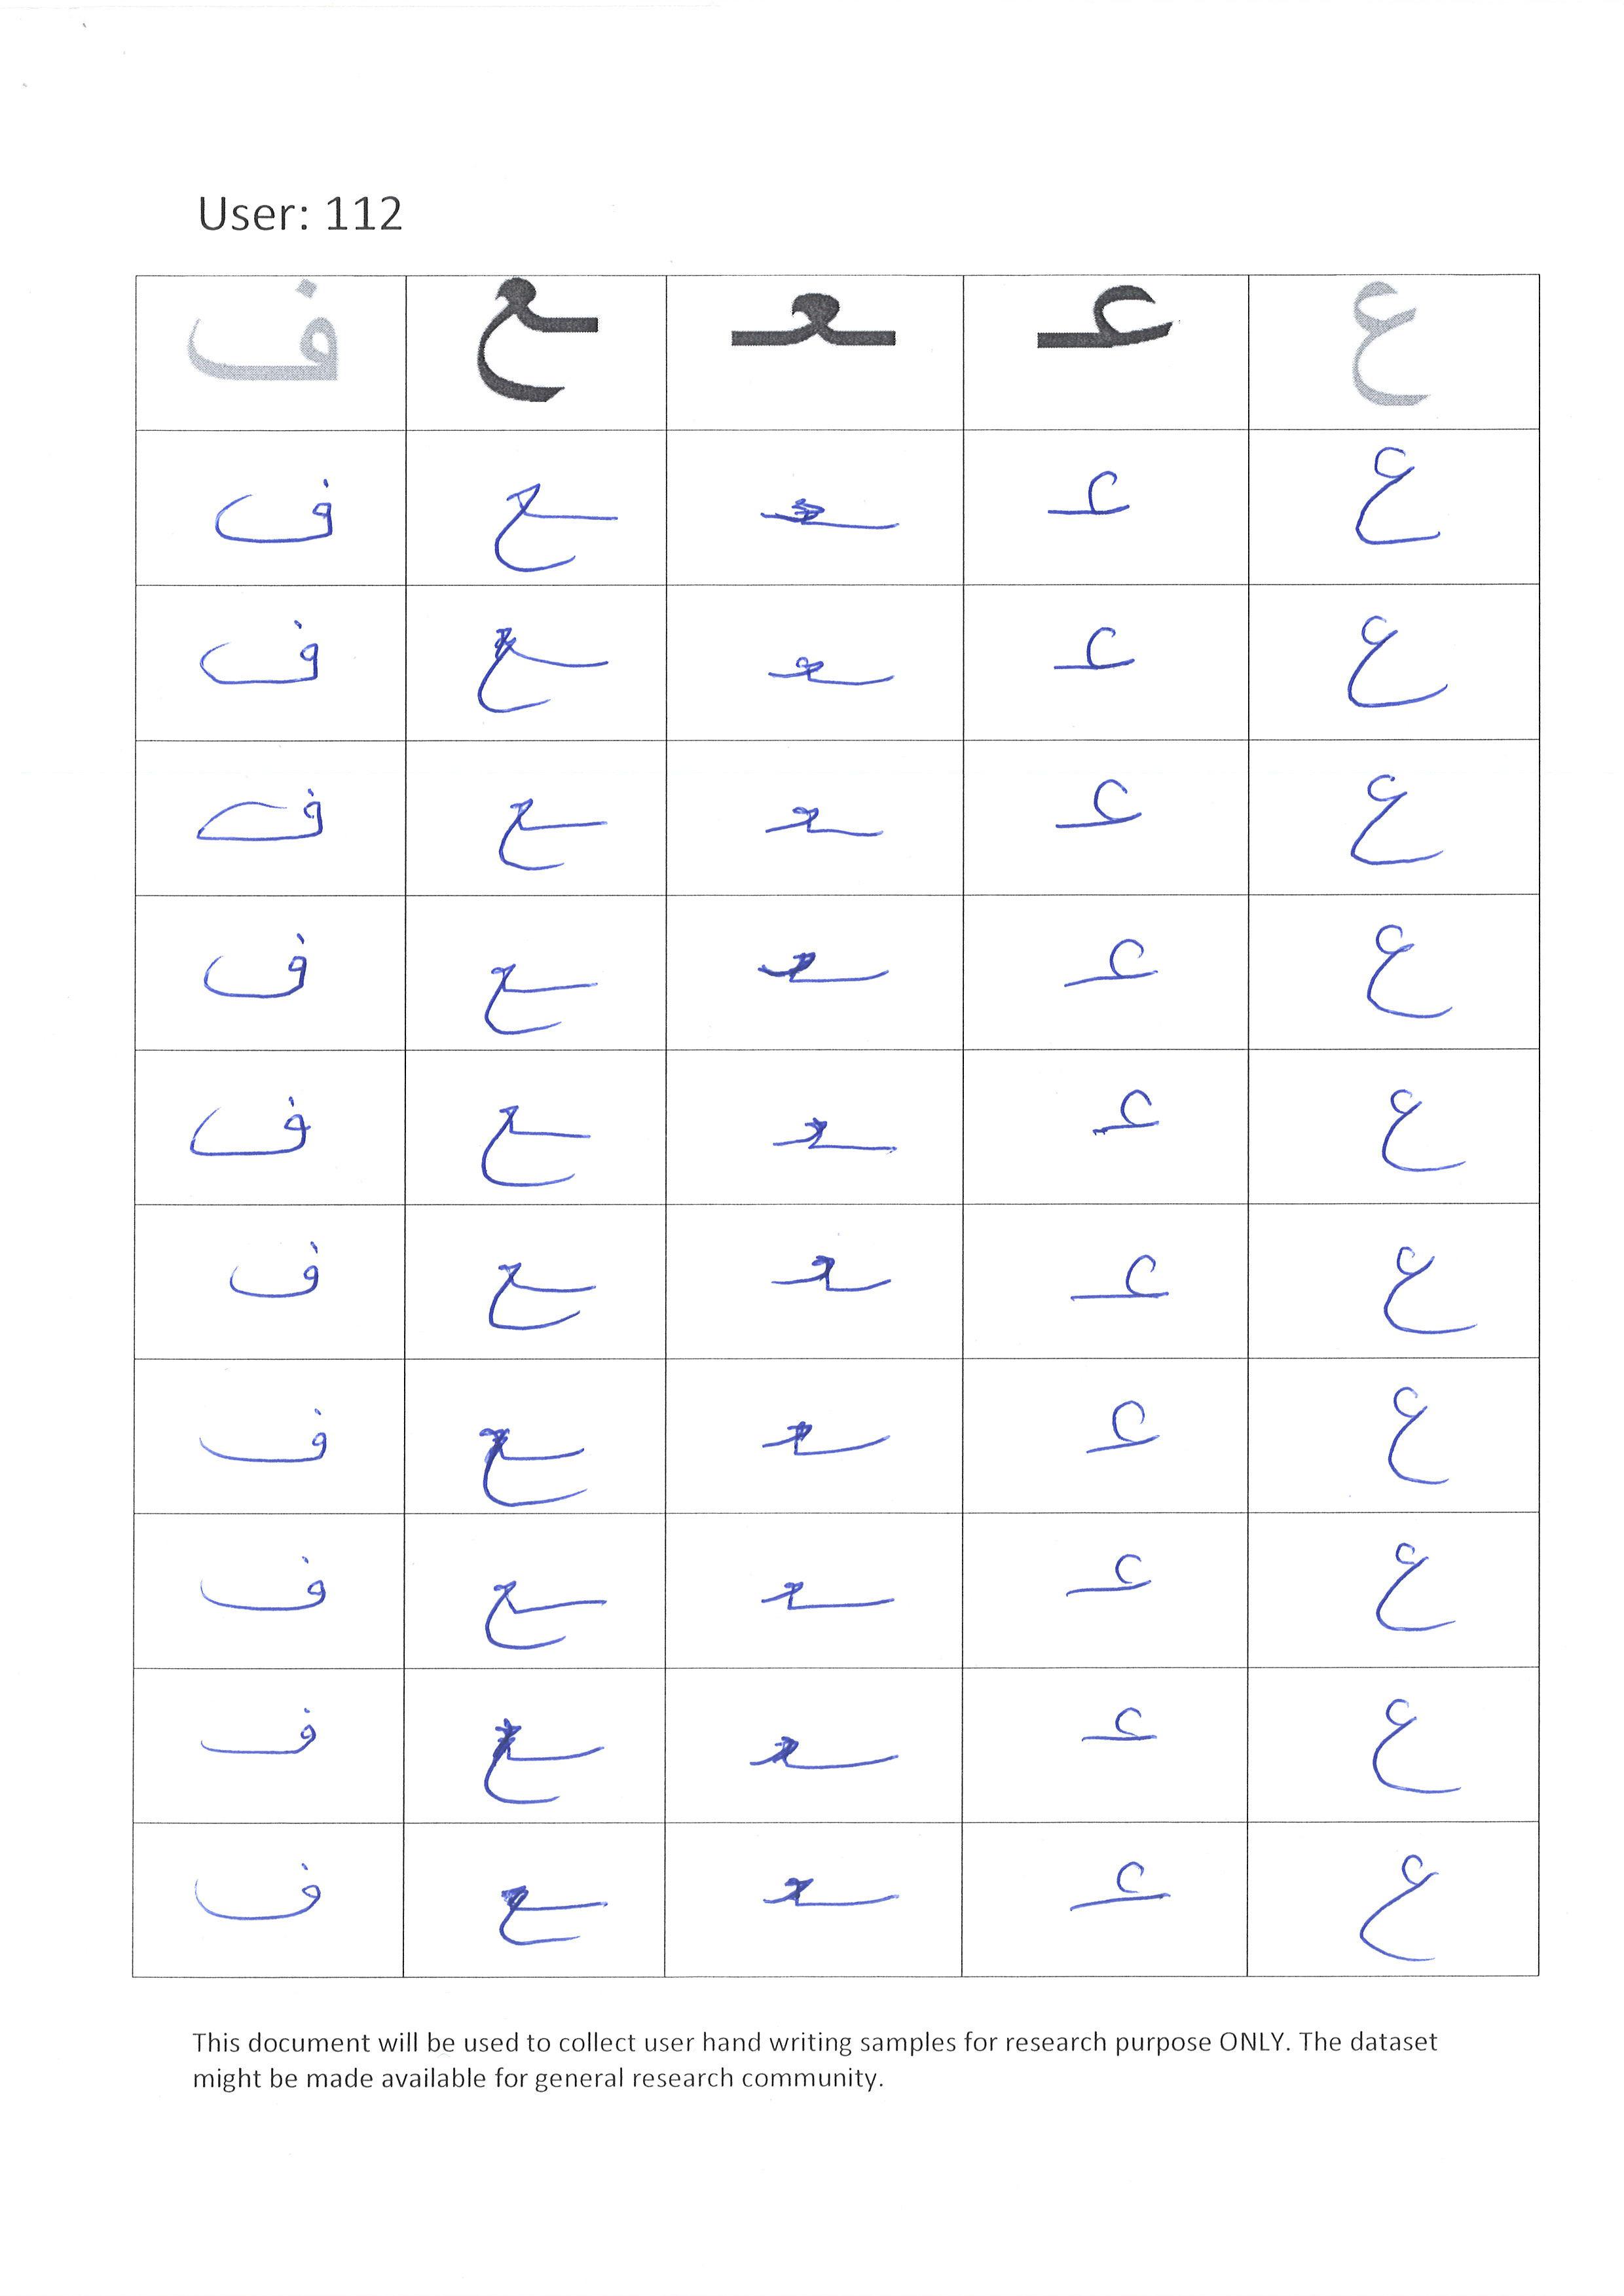 User: 112
ع عـ ـعـ ـع ف
ع عـ ـعـ ـع ف
ع عـ ـعـ ـع ف
ع عـ ـعـ ـع ف
ع عـ ـعـ ـع ف
ع عـ ـعـ ـع ف
ع عـ ـعـ ـع ف
ع عـ ـعـ ـع ف
ع عـ ـعـ ـع ف
ع عـ ـعـ ـع ف
ع عـ ـعـ ـع ف
This document will be used to collect user hand writing samples for research purpose ONLY. The dataset
might be made available for general research community.